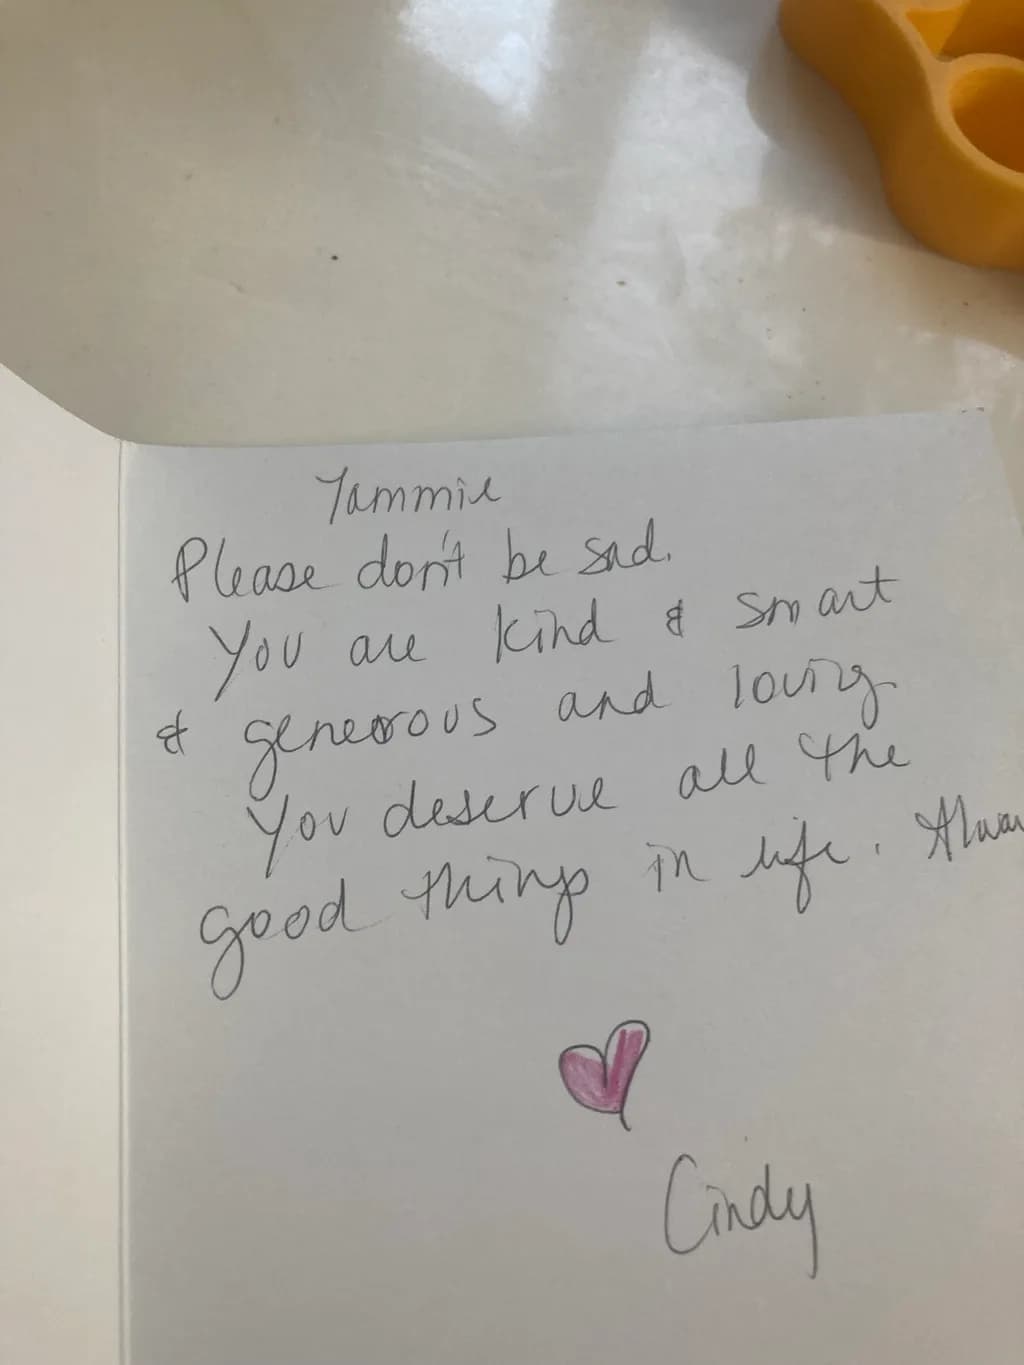 Tammie
Please don't be sad.
You are kind & smart
& generous and loving
You deserve all the
good things in life. Alwa
Cindy